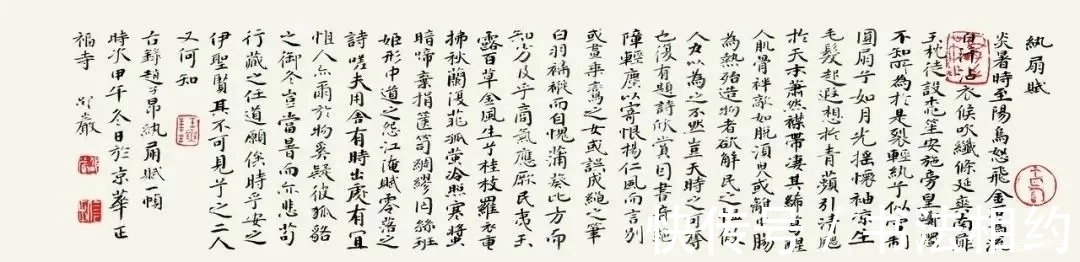 紈扇賦
炎暑時至陽烏怒飛金石為流
沾衣候吹纖絺延爽南扉
玉枕徒設桃笙安施旁皇躑躅
不知所為於是裂輕紈兮似 制
圓扇兮如月光摇懷袖涼生
毛髮起遐想於青蘋引清飔
於天末蕭然襟帶凄其絺 醒
人肌骨祥敲如脱須臾或離中腸
為熱殆造物者欲解民之 假
人力以為之不然豈天時之可奪
也復有題詩欣賞因書寄
障輕塵以寄恨揚仁風而言别
或畫乘鸞之女或誤成蠅之筆
白羽襧褷而自愧蒲葵比方而
知劣及乎商氣應厥民夷玉
露百草金風生兮桂枝羅衣重
拂秋蘭復菲孤螢冷照寒螿
暗啼棄捐篋笥綢繆网絲班
姬形中道之怨江淹賦零落之
詩嗟夫用舍有時出處有宜
惟人亦爾於物奚疑彼狐貉
之御冬豈當暑而亦悲苟
行藏之任道願俟時兮安之
伊聖賢其不可見兮之二人
又何知
古錄趙子昂紈扇賦一幀
時次甲午冬日於京華正
福寺 巖
快传号/书法相约